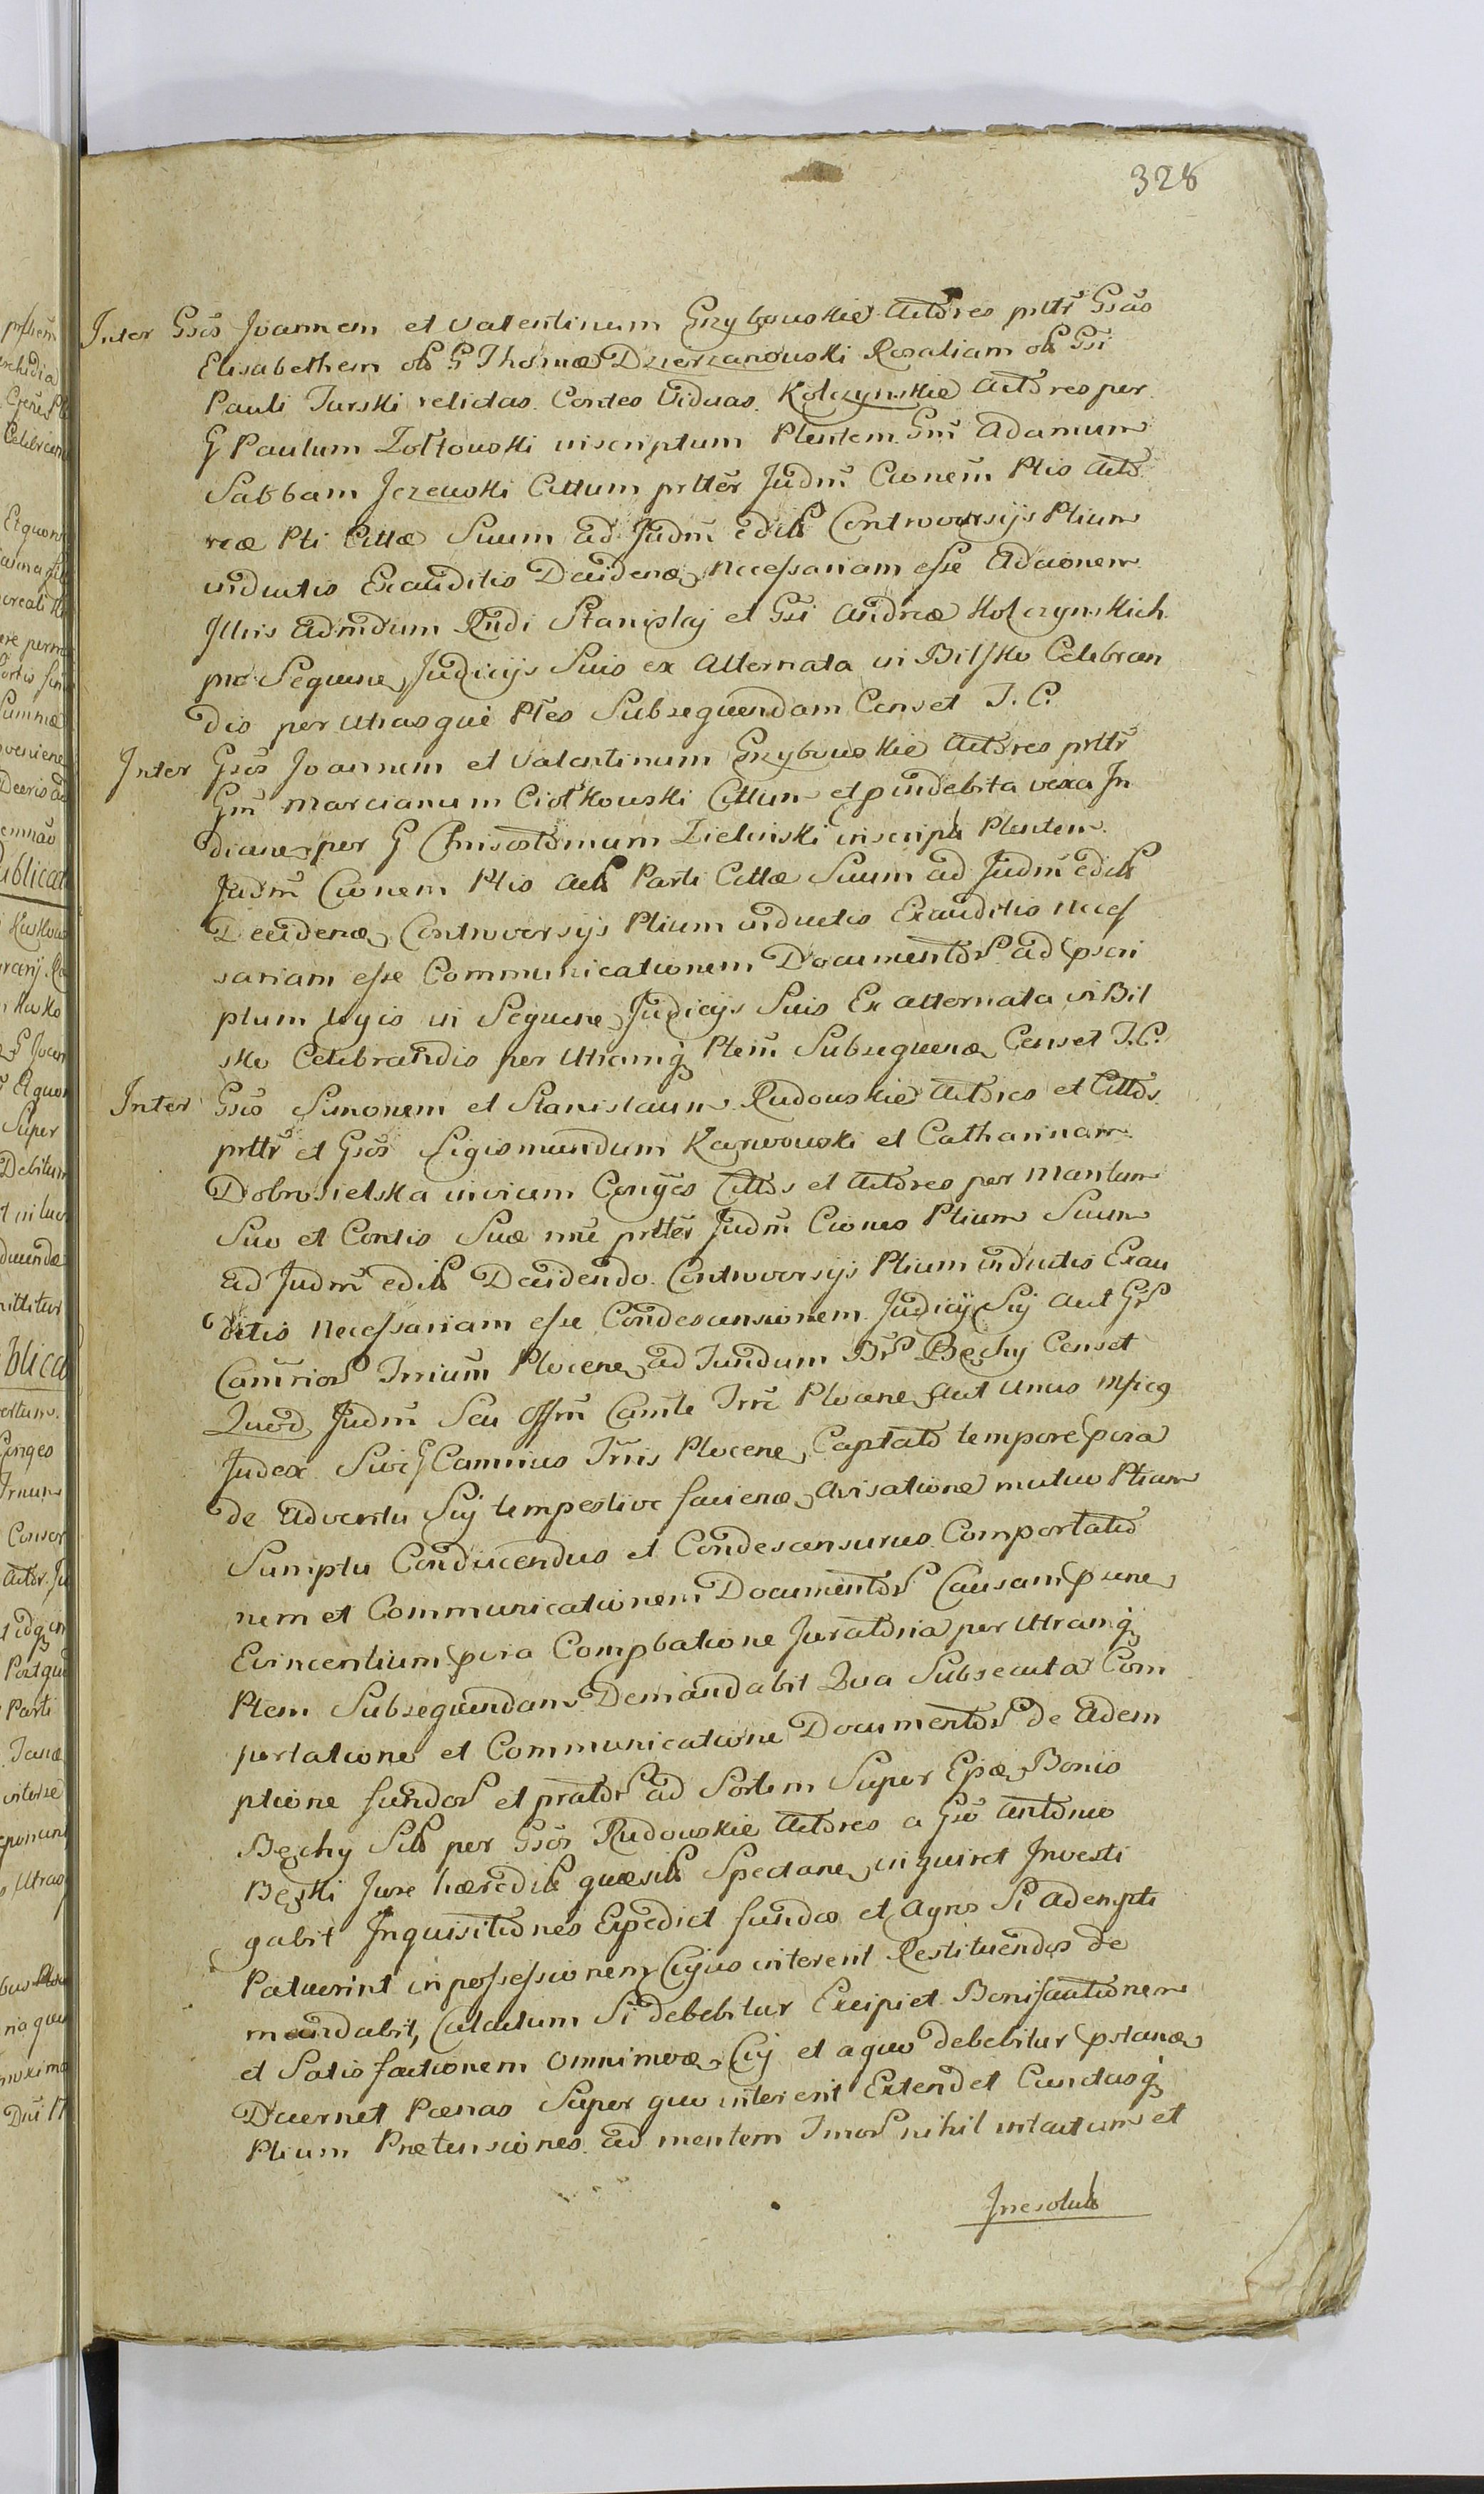 328
Inter Gsos Joannem et Valentinum Grzybowskie Actores prttr Gsas
Elisabethem olt G Thomæ Dzierzanowski Rosaliam olt Gsi
Pauli Turski relictas Contes Viduas Kolczynskie Actores per
G Paulum Zołtowski inscriptum Plentem Gm Adamum
Sabbam Jezewski Cittum prtter Judm Cionem Ptis Acto
reæ Pti Cittæ Suum ad Judm edil Controversijs Ptium
inductis Exauditis Decidenæ, Necessariam esse Adcionem
Jllris Admdum Rndi Stanislaj et Gsi Andreæ Kolczynskich
pro Seguene, Judicijs Suis ex Alternata in Bilsko Celebran
dis per Utrasque Ptes Subsequendam Censet J. C.
Inter Gsos Joannem et Valentinum Grzybowskie Actores prttr
Gm Marcianum Ciołkowski Cittum et p indebita vexa Jn
dicane, per G Chrisostomum Zielinski inscript Plentem
Judm Cionem Ptis Act Parti Cittæ Suum ad Judm edil
Decidenæ, Controversijs Ptium inductis Exauditis neces
sariam esse Communicationem Documentor ad pscri
ptum legis in Seguene, Judicijs Suis Ex alternata in Bil
sko Celebrandis per Utramq Ptem Subsequenæ, Censet J. C.
Inter Gsos Simonem et Stanislaum Rudowskie Actores et Cittos
prttr et Gsos Sigismundum Karwowski et Catharinam
Dobrosielska invicem Conjges Cittos et Actores per Maritum
Suo et Contis Suæ nne prtter Judm Ciones Ptium Suum
ad Judm edil Decidendo Controversijs Ptium inductis Exau
ditis necessariam esse Condescensionem Judicij Sij aut Gr
Camrior Trrium Plocene, ad Fundum Br Bęchy Censet
Quod Judm Seu Offm Camle Trre Plocene, aut Unus
Judex Sive G Camrius Trris Plocene, Captato tempore pvia
de Adventu Sij tempestive facienæ, Avisatione mutuo Ptium
Sumptu Conducendus et Condescensurus Comportatio
nem et Communicationem Documentor Causam psene,
Evincentium pvia Compbatione Juratoria per Utramq
Ptem Subsequendam Demandabit Qua Subsecuta Com
portatione et Communicatione Documentor de Adem
ptione fundor et prator ad Sortem Super Epæ, Bonis
Bęchy Sit per Gsos Rudowskie Actores a Gso Antonio
Bęski Jure hæredit quæsit Spectane, inquiret Investi
gabit Inquisitiones Expediet fundos et Agros Si adempti
Patuerint in possessionem Cujus intererit Restituendos de
mandabit, Calculum Si debebitur Excipiet Bonifactionem
et Satisfactionem Omnimoæ, Cij et a quo debebitur pstanæ,
Decernet Pœnas Super quo intererit Extendet Cunctasq
Ptium Prætensiones ad mentem Jurior nihil intactum et
Jrresolut